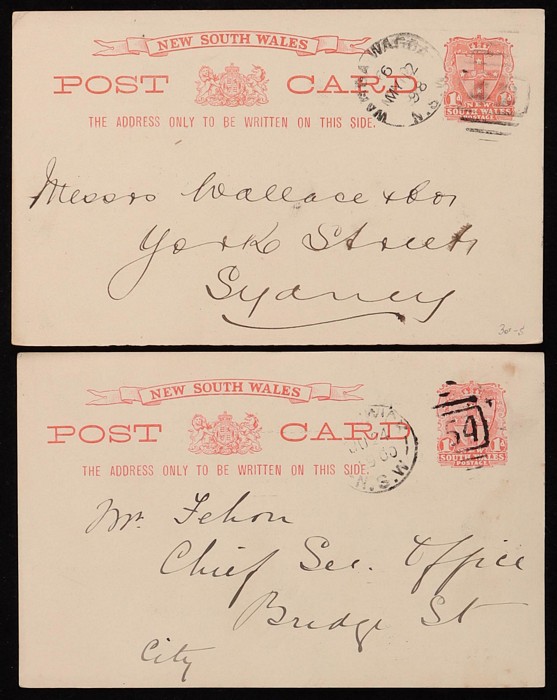 NEW SOUTH WALES
POST CARD
THE ADDRESS ONLY TO BE WRITTEN ON THIS SIDE.
WAGGA WAGGA
6
MY 22
88
N.S.W
1d
NEW
SOUTH WALES
POSTAGE
Messrs Wallace & Co
York Street
Sydney
NEW SOUTH WALES
POST CARD
THE ADDRESS ONLY TO BE WRITTEN ON THIS SIDE.
N.S.W
54
1d
SOUTH WALES
POSTAGE
Mr. Fehon
Chief Sec. Office
Bridge St
City